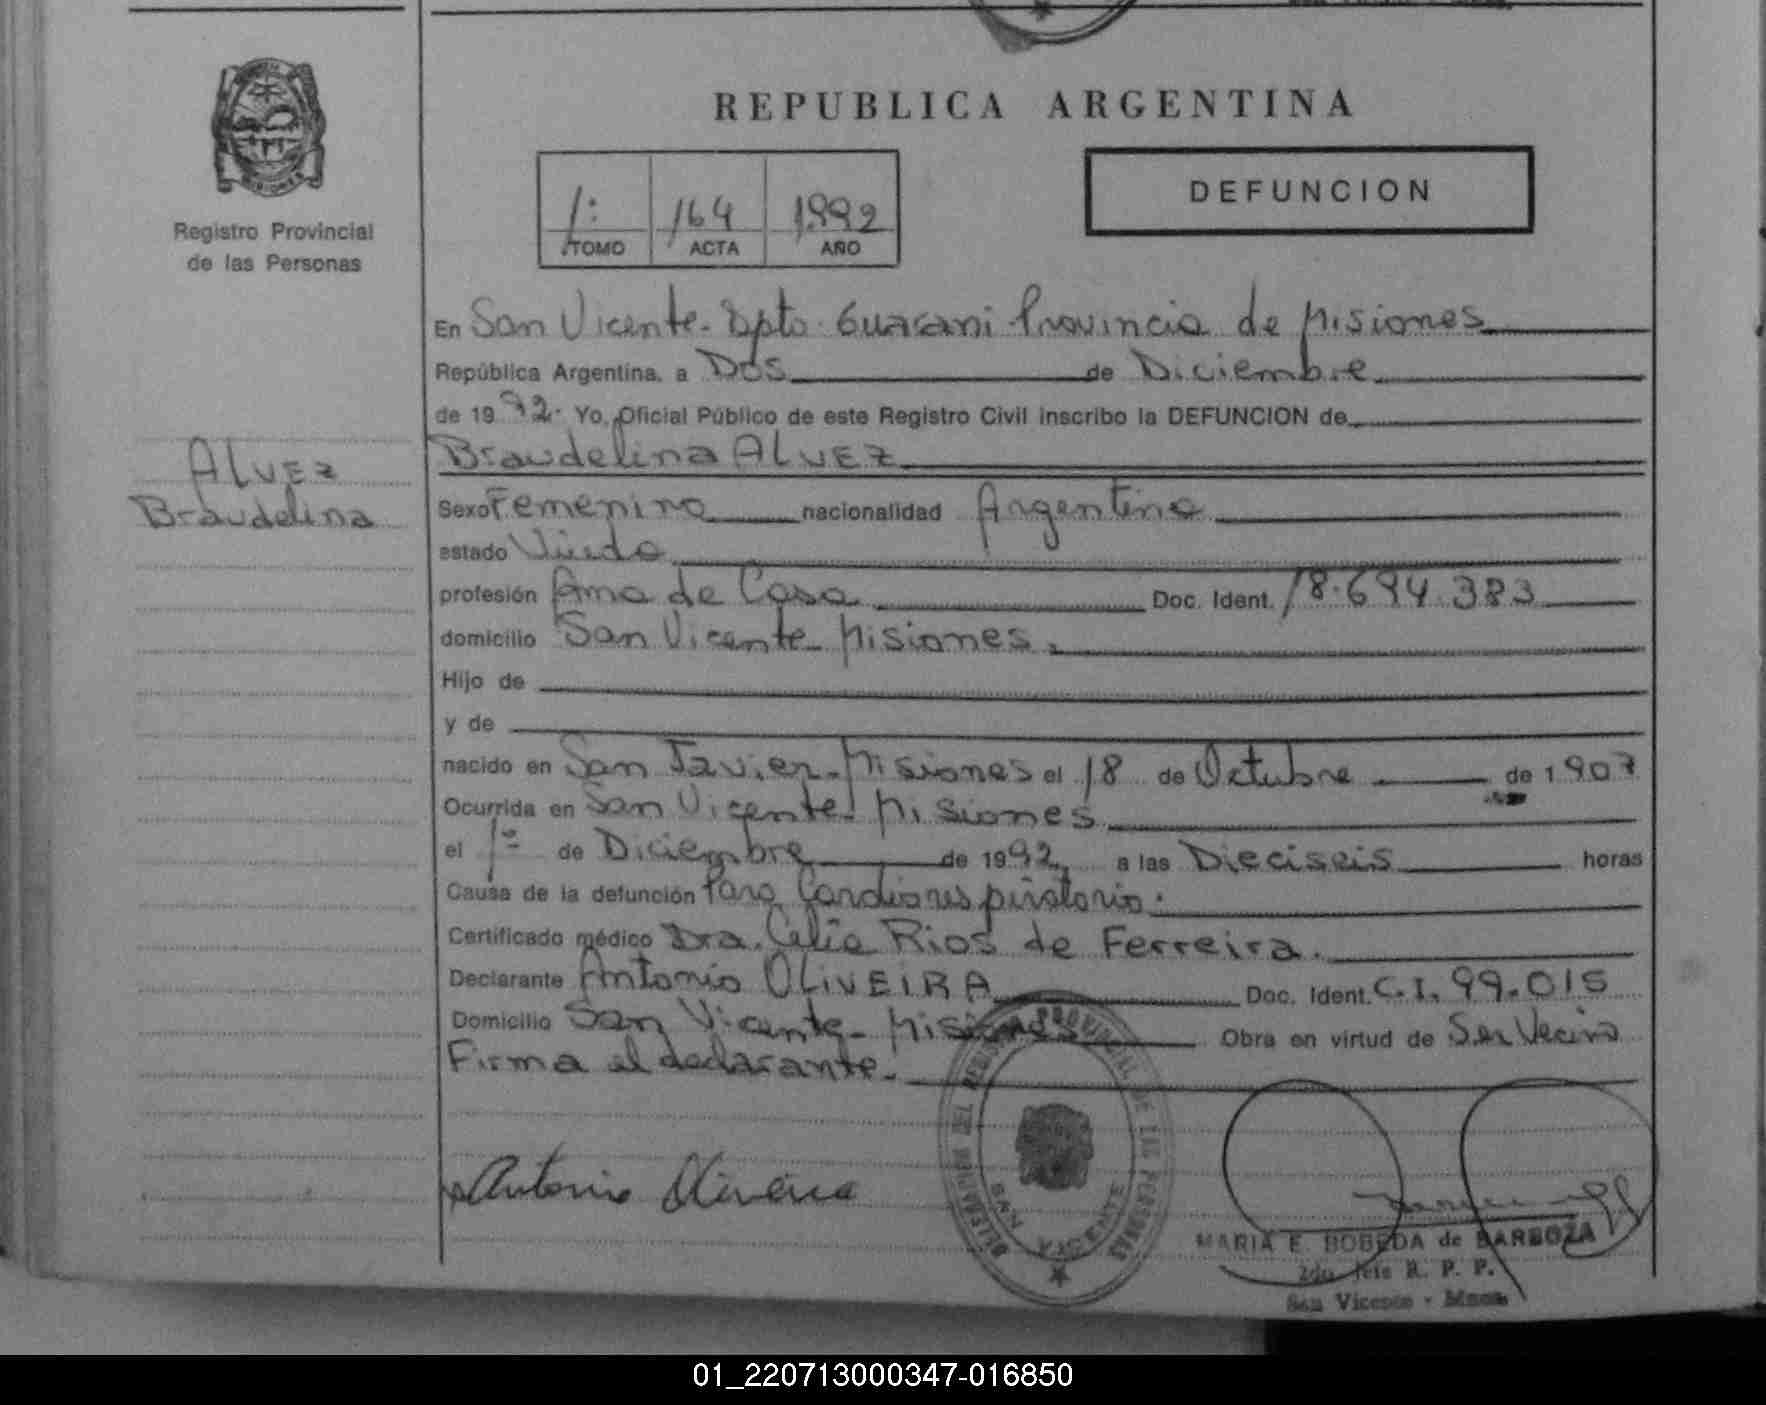 MISIONES
Registro Provincial
de las Personas
REPUBLICA ARGENTINA
1: 164 1992
TOMO ACTA AÑO
DEFUNCION
En San Vicente- Dpto. Guarani Provincia de Misiones
República Argentina, a Dos de Diciembre
de 1992. Yo, Oficial Público de este Registro Civil inscribo la DEFUNCION de
Braudelina ALVEZ
ALVEZ
Braudelina
Sexo Femenino nacionalidad Argentina
estado Viuda
profesión Ama de Casa Doc. Ident. 18.694.383
domicilio San Vicente- Misiones.
Hijo de
y de
nacido en San Javier- Misiones el 18 de Octubre de 1907
Ocurrida en San Vicente- Misiones
el 1º de Diciembre de 1992, a las Dieciseis horas
Causa de la defunción Paro Cardiorespiratorio.
Certificado médico Dra. Celia Rios de Ferreira.
Declarante Antonio OLIVEIRA Doc. Ident. C.I. 99.015
Domicilio San Vicente- Misiones Obra en virtud de Ser Vecino
Firma el declarante.
Antonio Oliveira
REGISTRO PROVINCIAL DE LAS PERSONAS
SAN VICENTE
MARIA E. BOBEDA de BARBOZA
2do. Jefe R. P. P.
San Vicente - Mnes.
01_220713000347-016850